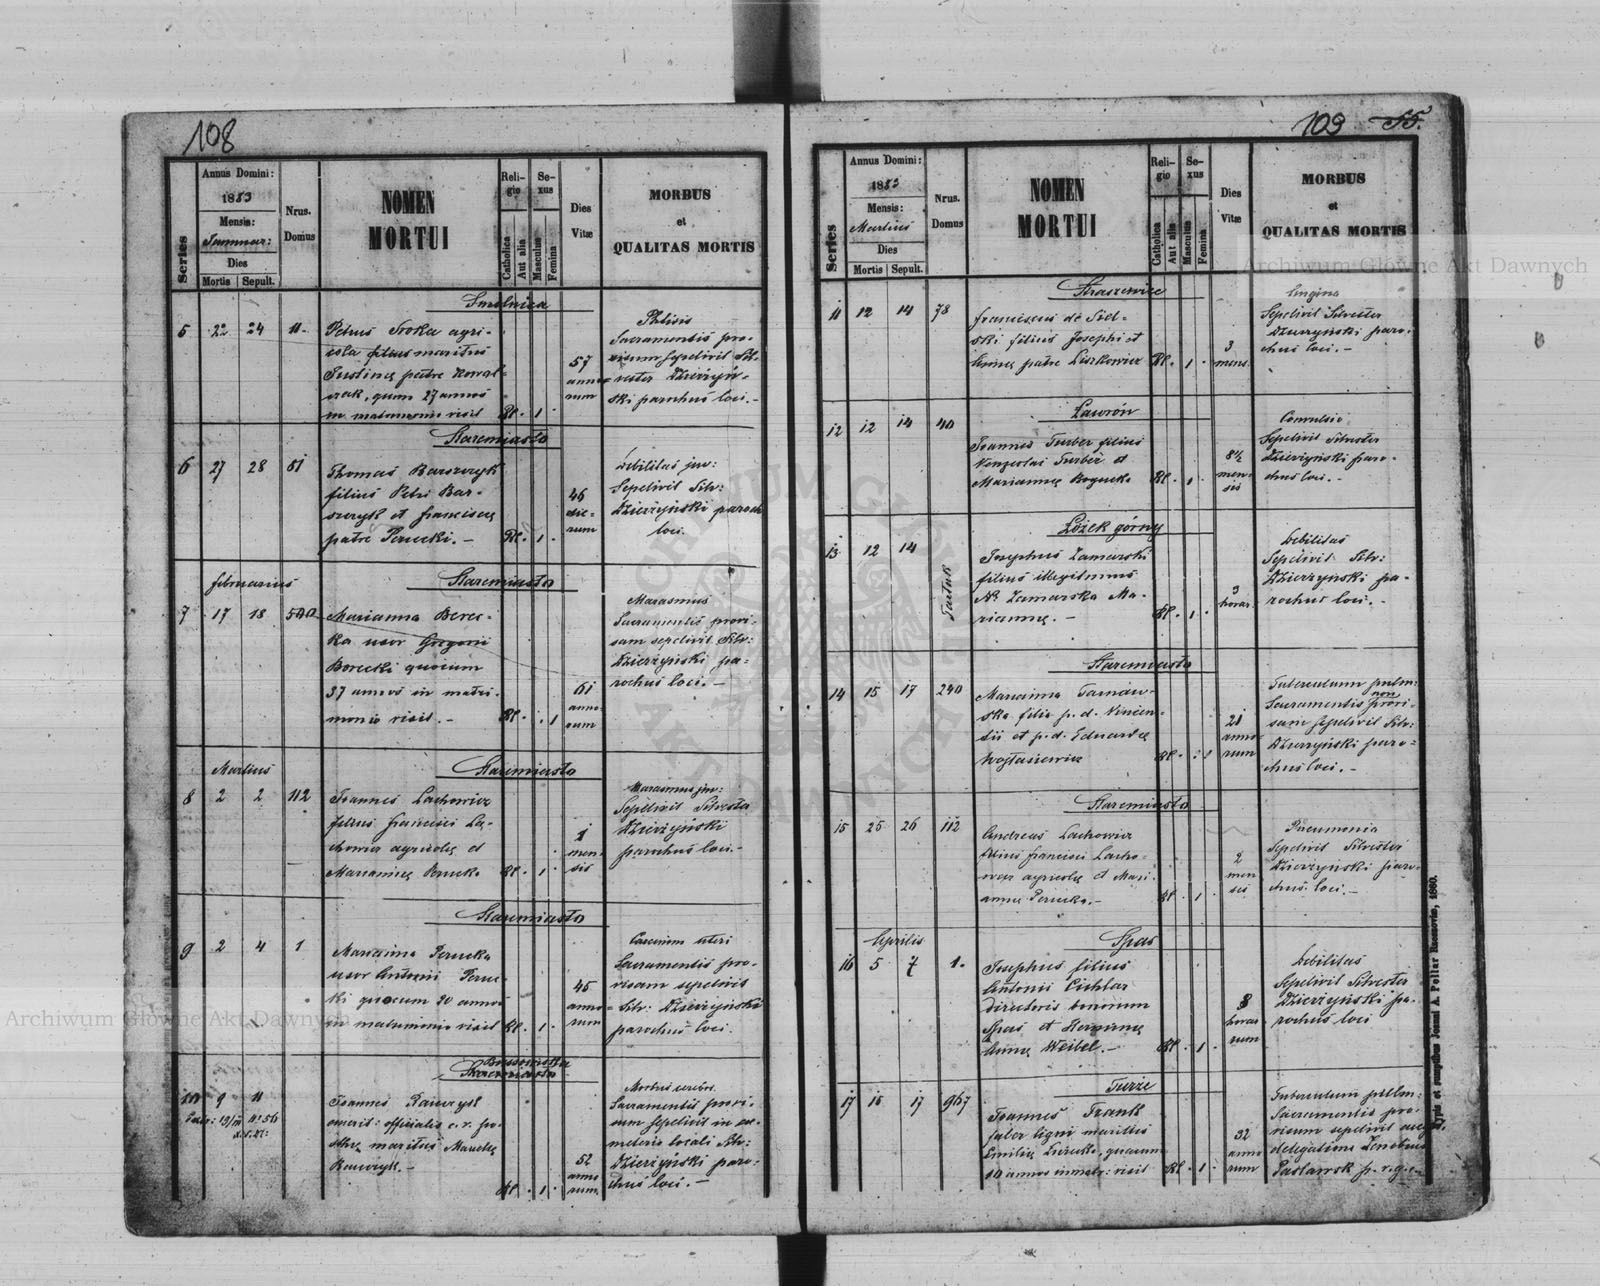 108
Annus Domini:
1883
Mensis:
Januar:
Dies
Mortis Sepult.
Series
Nrus. Domus
NOMEN MORTUI
Religio
Catholica
Aut alia
Sexus
Masculus
Femina
Dies Vitæ
MORBUS
et
QUALITAS MORTIS
Smelnica
5 22 24 11
Petrus Sroka agri-
cola filius maritus
Justinæ patre Kowal-
czak, quam 27 annos
in matrimonio vixit
Rl. 1
57 annorum
Phtisis
Sacramentis pro-
visum sepelivit Sil-
vester Dzierżyń-
ski parochus loci. -
Staremiasto
6 27 28 61
Thomas Barszczyk
filius Petri Bar-
szczyk et Franciscæ
patre Perucki. -
Rl. 1
46 dierum
Debilitas juv:
Sepelivit Silv:
Dzierżyński paroch
loci.
Februarius
Staremiasto
7 17 18
Marianna Berec-
ka uxor Gregorii
Borecki quocum
37 annos in matri-
monio vixit. -
Rl. 1
61 annorum
Marasmus
Sacramentis provi-
sam sepelivit Silv:
Dzierżyński pa-
rochus loci. -
Martius
Staremiasto
8 2 2 112
Joannes Lachowicz
filius Francisci La-
chowicz agricolæ et
Mariannæ Perucka
Rl. 1
1 mensis
Marasmus juv:
Sepelivit Silvester
Dzierżyński
parochus loci. -
Staremiasto
9 2 4 1
Marianna Perucka
uxor Antonii Peruc-
ki quocum 20 annos
in matrimonio vixit
Rl. 1
45 annorum
Carcinom uteri
Sacramentis pro-
visam sepelivit
Silv: Dzierżyński
parochus loci.
Staremiasto
10 9 11
Joannes
emerit: officialis c. r. po-
maritus
52 annorum
Rl. 1
Morbus cerebri
Sacramentis provi-
sum sepelivit in coe-
meterio locali Silv:
Dzierżyński paro-
chus loci. -
109 55.
Annus Domini:
1883
Mensis:
Martius
Dies
Mortis Sepult.
Series
Nrus. Domus
NOMEN MORTUI
Religio
Catholica
Aut alia
Sexus
Masculus
Femina
Dies Vitæ
MORBUS
et
QUALITAS MORTIS
Straszewice
11 12 14 78
Franciscus de Siel-
ski filius Josephi et
patre Liszkowicz
Rl. 1
3 mens.
Angina
Sepelivit Silvester
Dzierżyński paro-
chus loci. -
Lawrów
12 12 14 40
Joannes Turber filius
Venzeslai Turber et
Mariannæ
Rl. 1
8½ mensis
Convulsio
Sepelivit Silvester
Dzierżyński paro-
chus loci. -
Łóżek górny
13 12 14 Tartak
Josephus Zamarski
filius illegitimus
Næ Zamarska Ma-
riannæ. -
Rl. 1
3 horar.
Debilitas
Sepelivit Silv:
Dzierżyński pa-
rochus loci. -
Staremiasto
14 15 17 240
Marianna Tarnaw-
ska filia p. d. Vincen-
tii et p. d. Eduardæ
Wojtasiewicz
Rl. 1
21 annorum
Tuberculum pulm:
non
Sacramentis provi-
sam sepelivit Silv:
Dzierżyński paro-
chus loci. -
Staremiasto
15 25 26 112
Andreas Lachowicz
filius Francisci Lacho-
wicz agricolæ et Mari-
annæ Perucka. -
Rl. 1
2 mensis
Pneumonia
Sepelivit Silvester
Dzierżyński paro-
chus loci. -
Aprilis
Spas
16 5 7 1.
Josephus filius
Antonii Cichlar
directoris bonorum
Spas et Herminæ
Annæ Weibel. -
Rl. 1
8 horarum
Debilitas
Sepelivit Silvester
Dzierżyński pa-
rochus loci
Turze
17 15 17 967
Joannes Frank
faber ligni maritus
Emiliæ quacum
10 annos in matr: vixit
Rl. 1
32 annorum
Tuberculum pulm:
Sacramentis pro-
visum sepelivit
delegatione
Paslawsk p. r. g. c.
Typis et sumptibus Joanni A. Pellar Rzeszoviæ, 1860.
Archiwum Główne Akt Dawnych
Archiwum Główne Akt Dawnych
ARCHIWUM GŁÓWNE AKT DAWNYCH